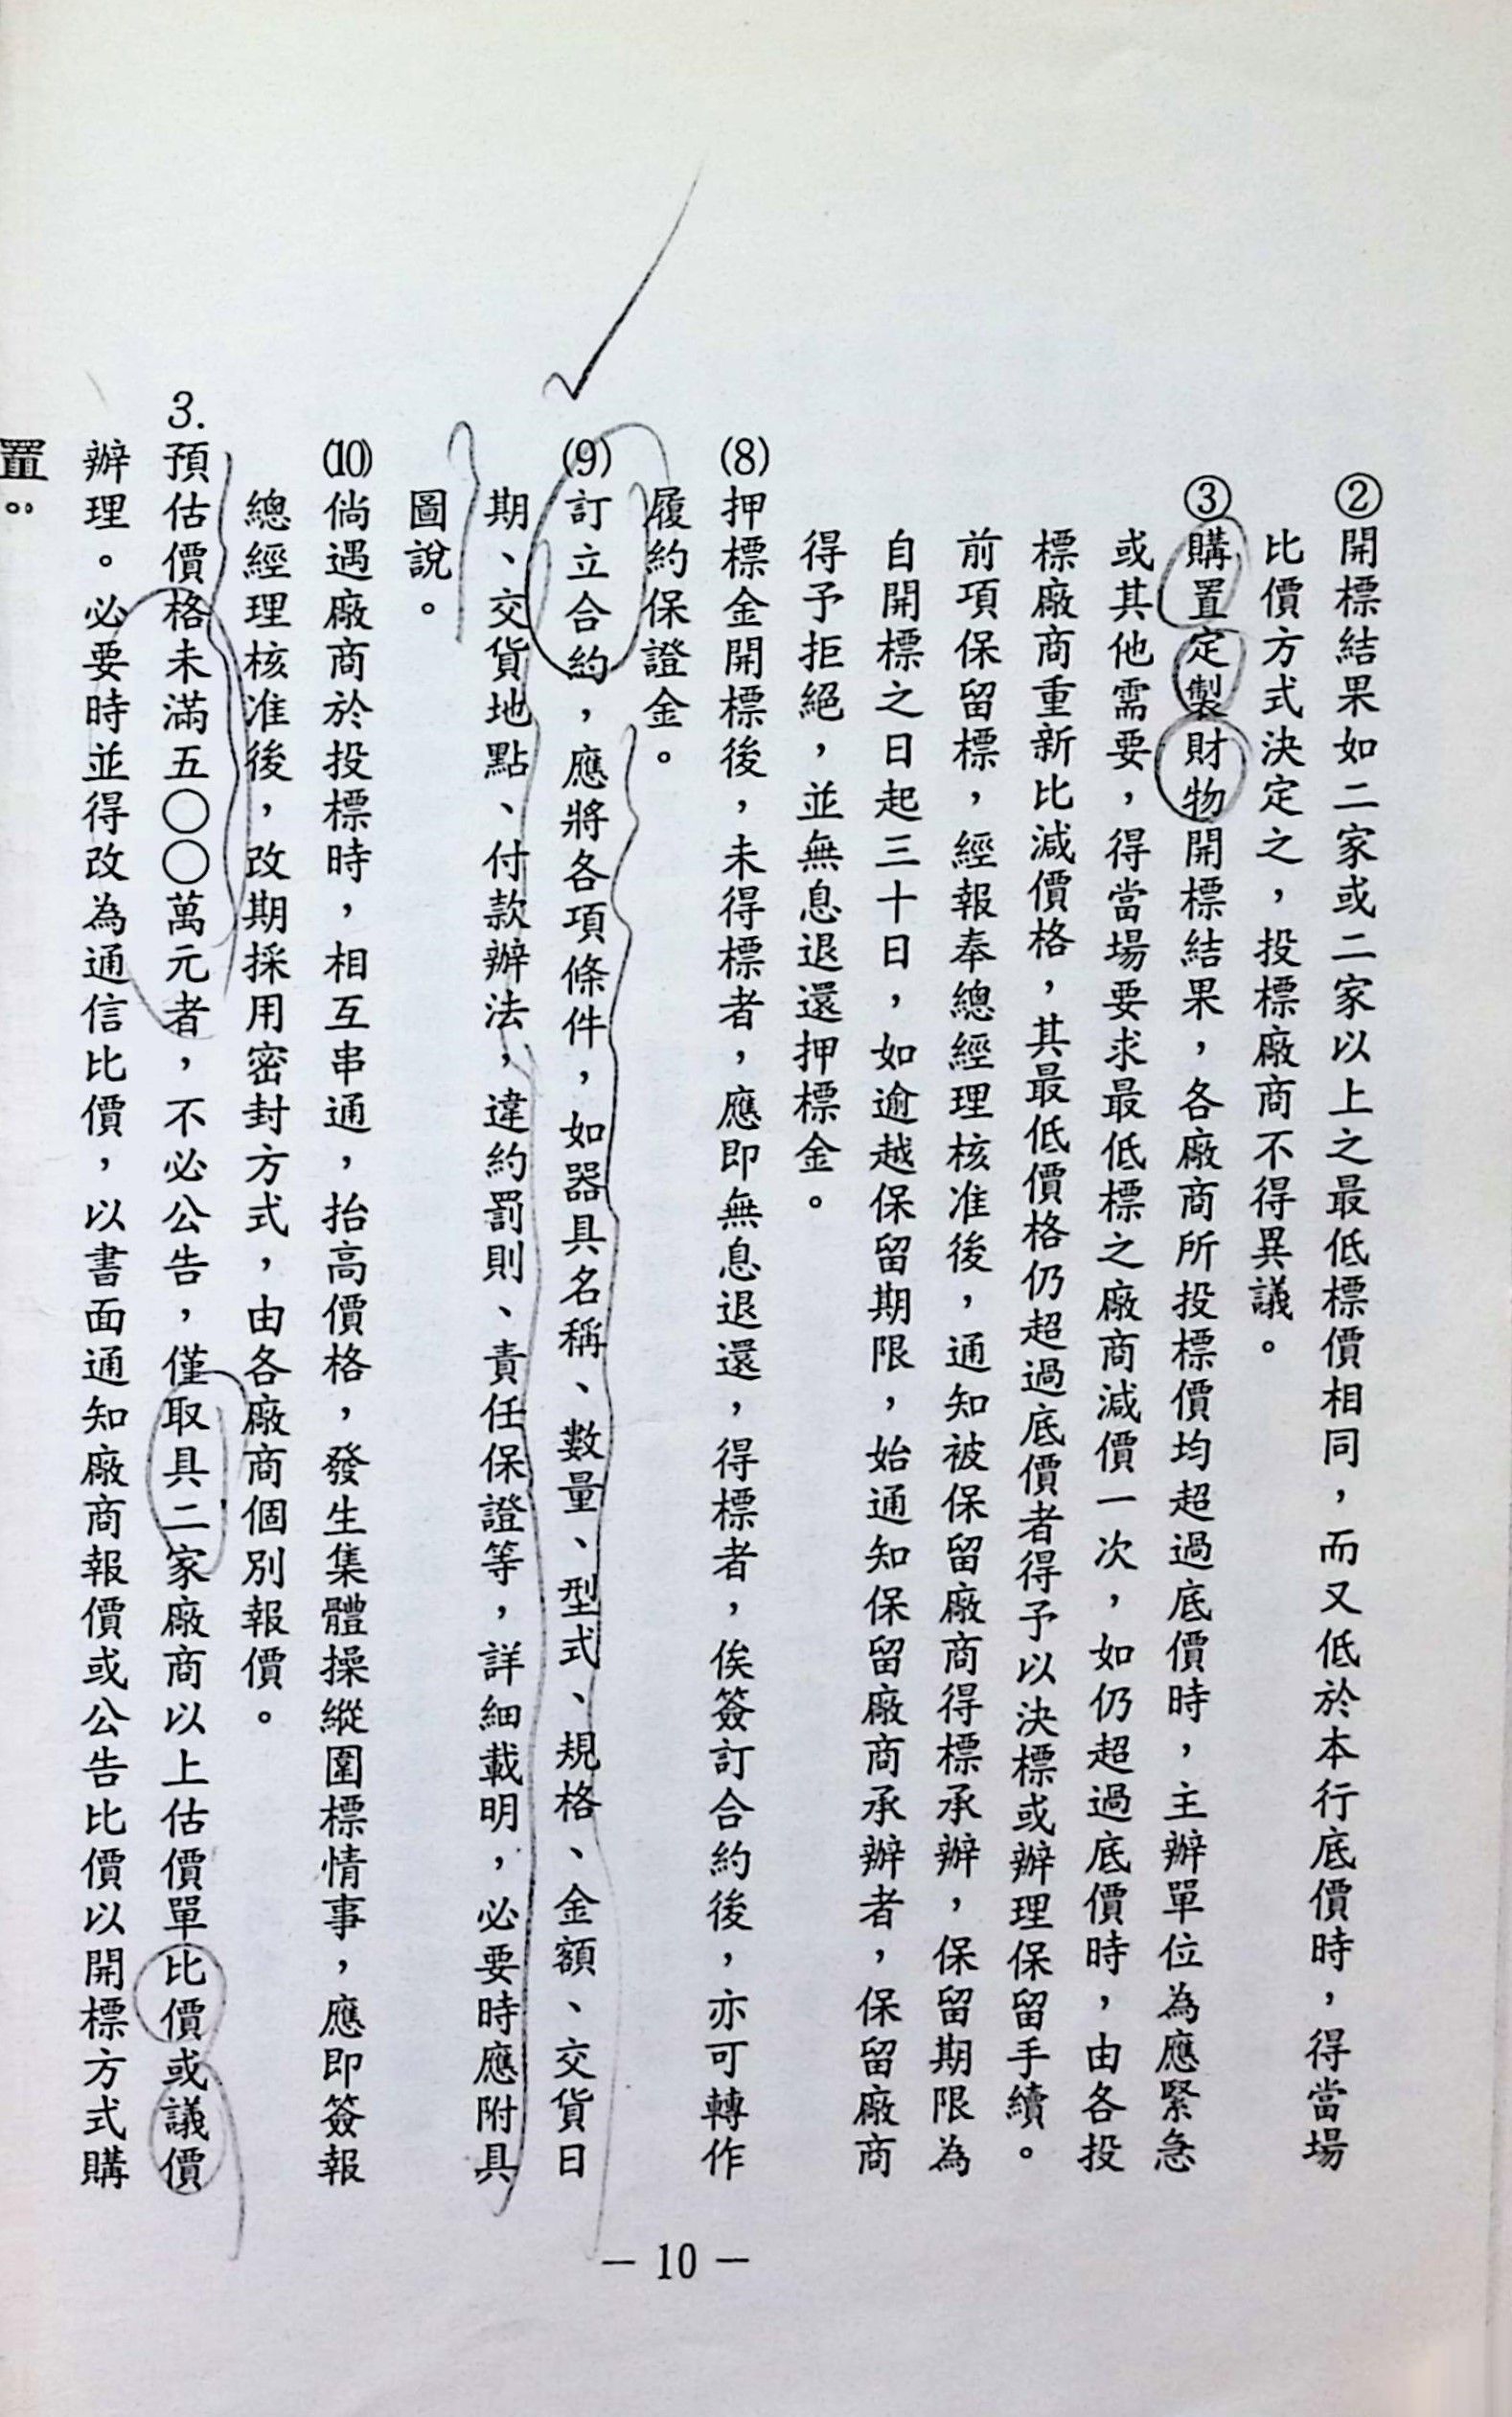 ②開標結果如二家或二家以上之最低標價相同，而又低於本行底價時，得當場
比價方式決定之，投標廠商不得異議。
③購置定製財物開標結果，各廠商所投標價均超過底價時，主辦單位為應緊急
或其他需要，得當場要求最低標之廠商減價一次，如仍超過底價時，由各投
標廠商重新比減價格，其最低價格仍超過底價者得予以決標或辦理保留手續。
前項保留標，經報奉總經理核准後，通知被保留廠商得標承辦，保留期限為
自開標之日起三十日，如逾越保留期限，始通知保留廠商承辦者，保留廠商
得予拒絕，並無息退還押標金。
(8)押標金開標後，未得標者，應即無息退還，得標者，俟簽訂合約後，亦可轉作
履約保證金。
(9)訂立合約，應將各項條件，如器具名稱、數量、型式、規格、金額、交貨日
期、交貨地點、付款辦法，違約罰則、責任保證等，詳細載明，必要時應附具
圖說。
(10)倘遇廠商於投標時，相互串通，抬高價格，發生集體操縱圍標情事，應即簽報
總經理核准後，改期採用密封方式，由各廠商個別報價。
3.預估價格未滿五〇〇萬元者，不必公告，僅取具二家廠商以上估價單比價或議價
辦理。必要時並得改為通信比價，以書面通知廠商報價或公告比價以開標方式購
置。
－10－